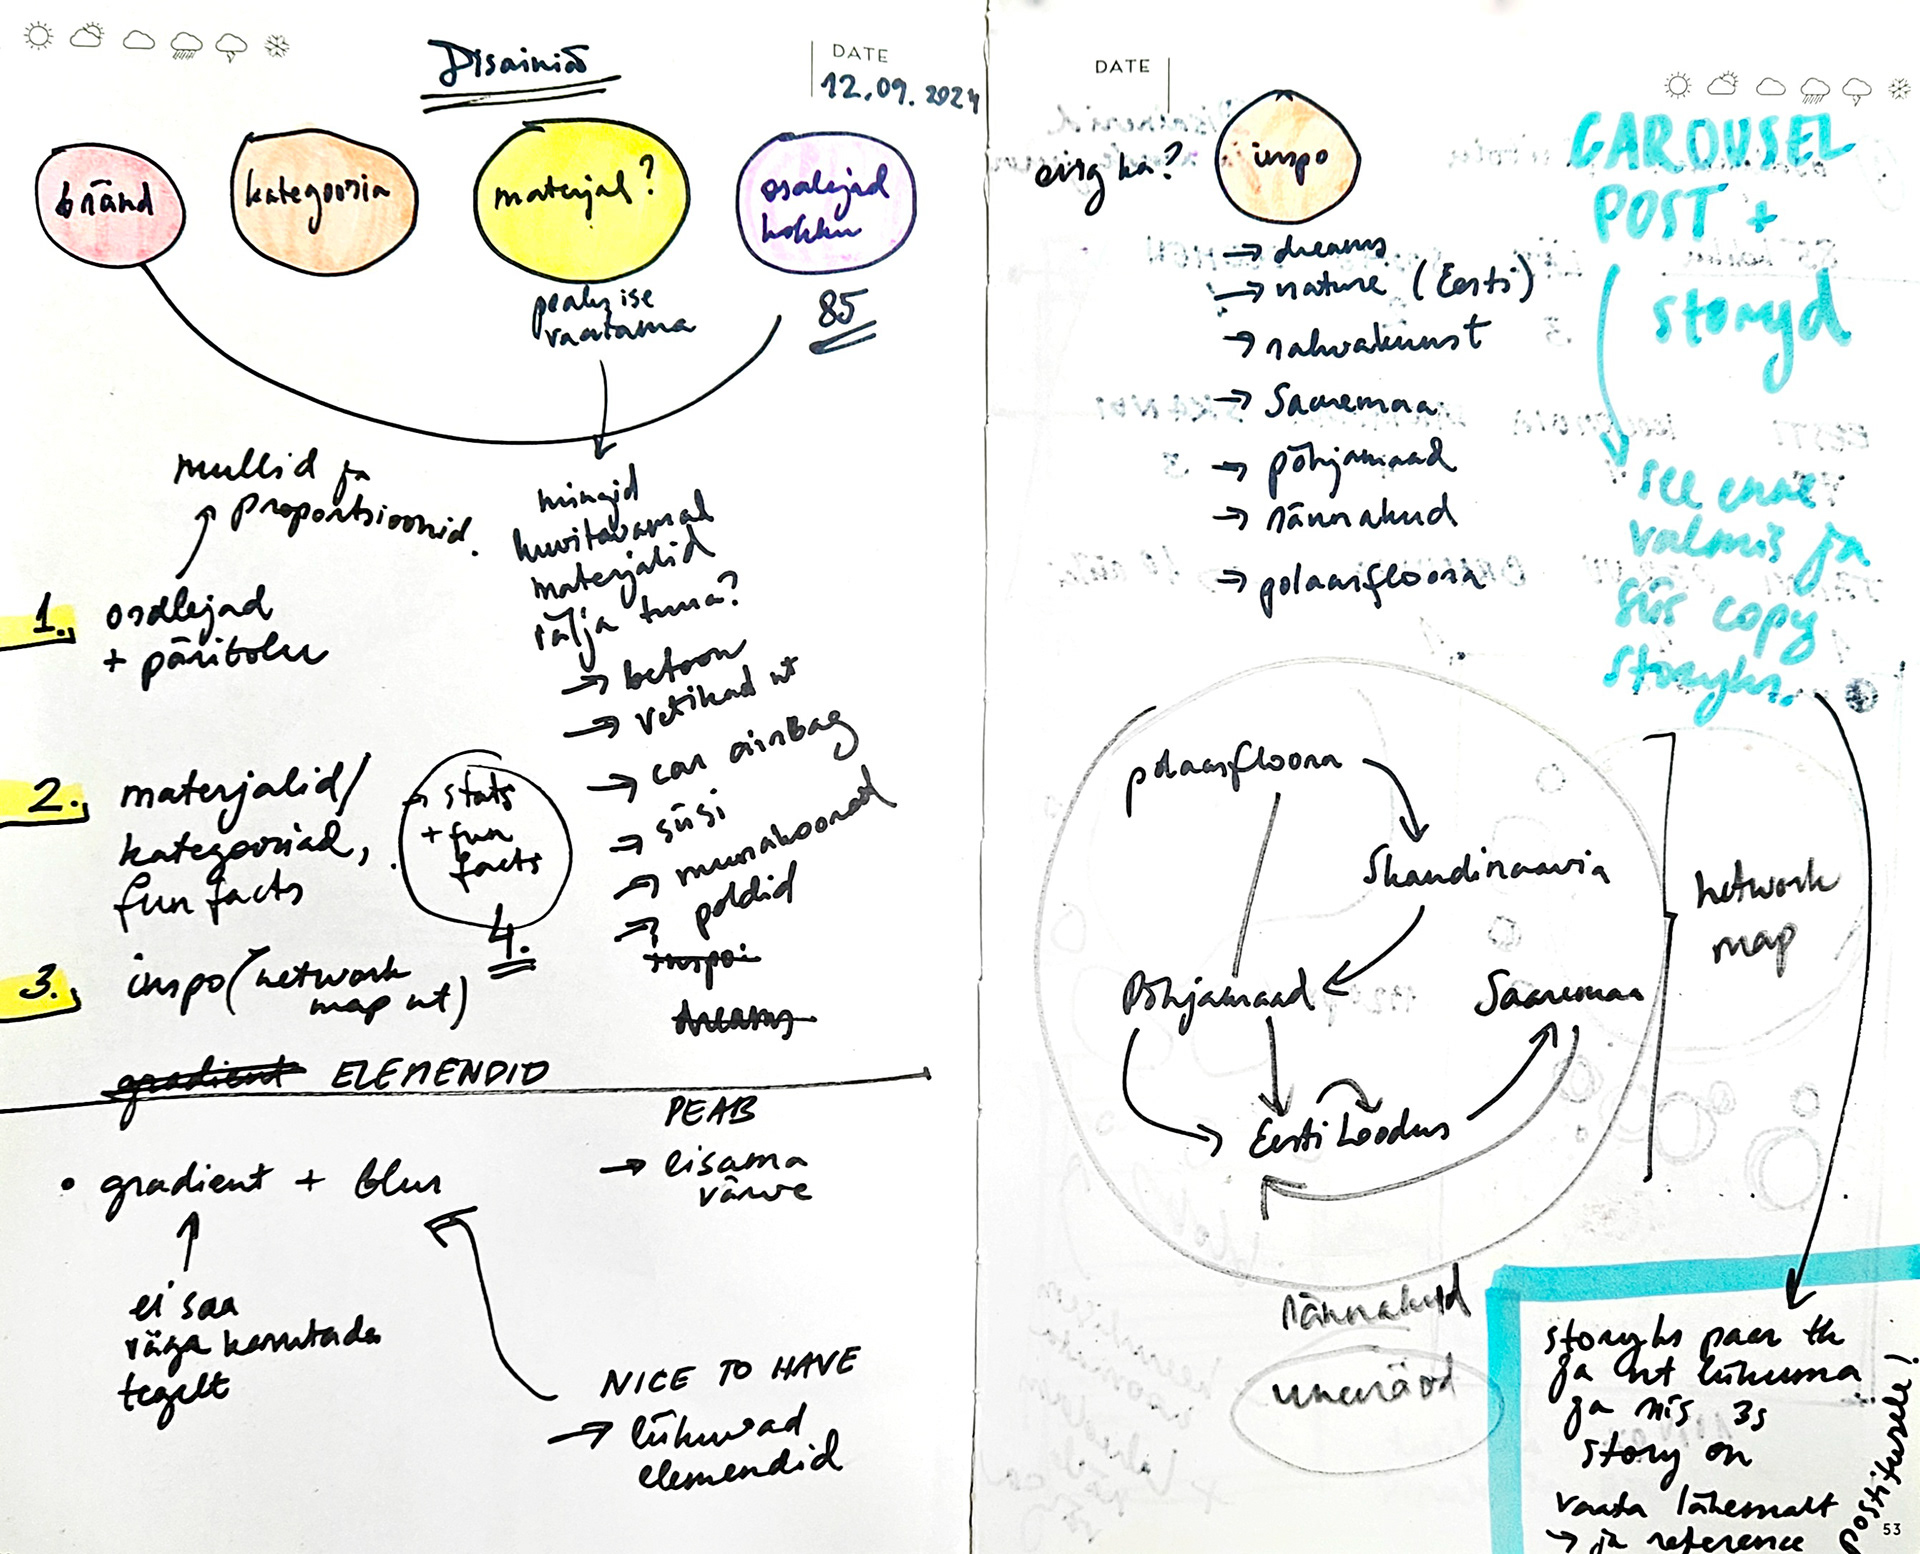 Disainiö
DATE
12.09.2024
bränd
kategooria
materjal?
osalejad
kokku
pealu ise
vaatama
85
mullid ja
proportsioonid.
mingid
huvitavamad
materjalid
välja tuua?
→ betoon
→ vetikad nt
→ car airbag
→ süsi
→ munakoored
→ poldid
inspo:
dreams
1. osalejad
+ päritolu
2. materjalid/
kategooriad,
fun facts
→ stats
+ fun
facts
4.
3. inspo (network
map nt)
gradient ELEMENDID
• gradient + blur
ei saa
väga kasutada
tegelt
PEAB
→ lisama
värve
NICE TO HAVE
→ liikuvad
elemendid
DATE
ka?
inspo
→ dreams
→ nature (Eesti)
→ rahvakunst
→ Saaremaa
→ põhjamaad
→ rännakud
→ polaarfloora
CAROUSEL
POST +
storyd
see enne
valmis ja
siis copy
storyks.
polaarfloora
Skandinaavia
Põhjamaad
Saaremaa
Eesti Loodus
network
map
rännakud
unenäod
storyks paar tk
ja nt liikuma
ja mis 3s
story on
vaata lähemalt
→ ja reference
postitusele!
53